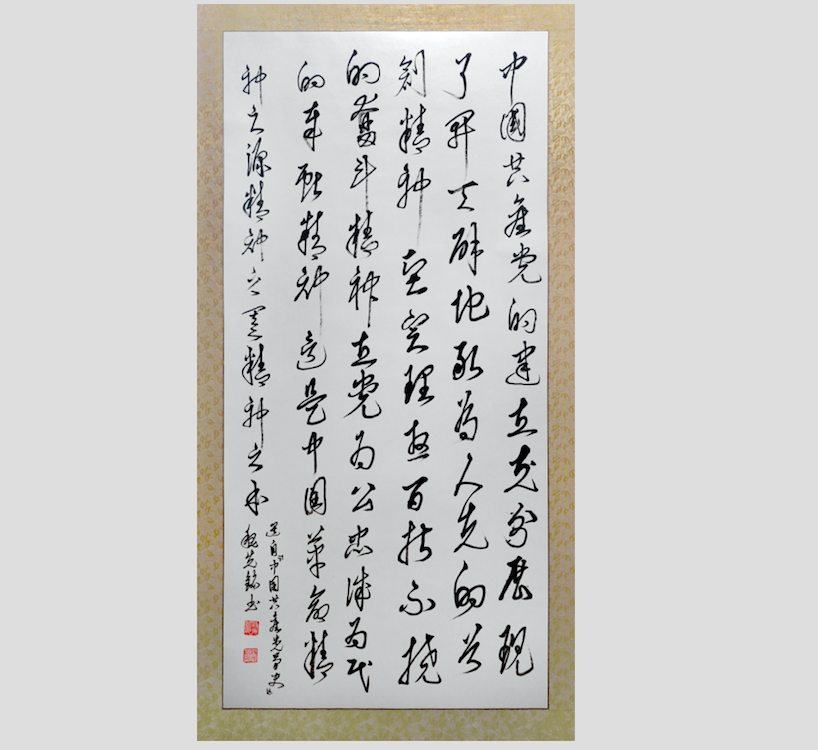 中国共产党的建立充分展现
了开天辟地敢为人先的首
创精神坚定理想百折不挠
的奋斗精神立党为公忠诚为民
的奉献精神这是中国革命精
神之源精神之基精神之本
选自《中国共产党历史》
先铭书